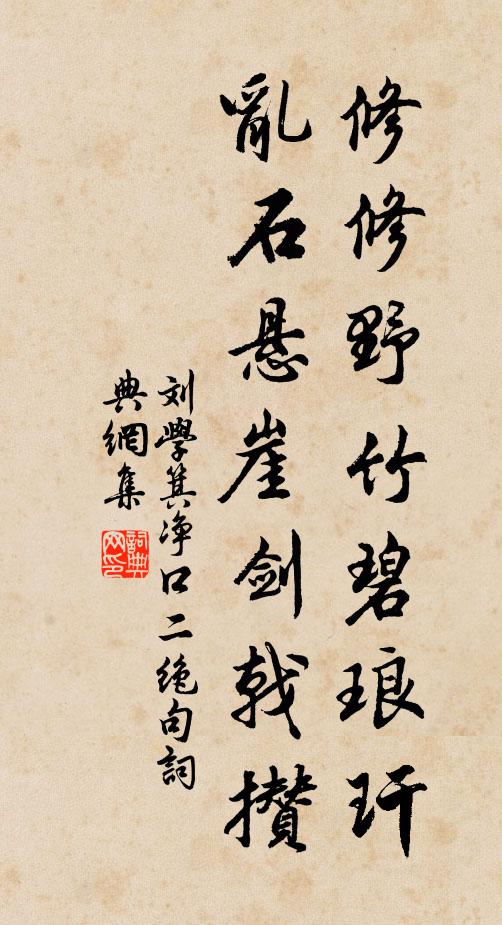 修修野竹碧琅玕
亂石悬崖剑戟攒
刘學箕净口二绝句詞
典網集
詞典
网印